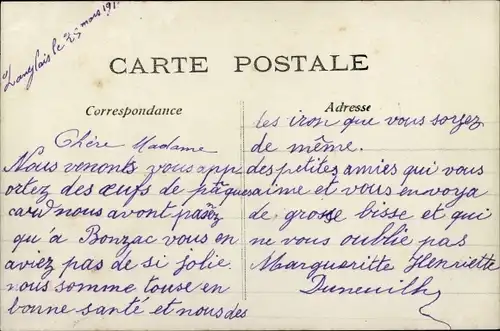 Langlais le 25 mars 191
CARTE POSTALE
Correspondance
Chère Madame
Nous venonts vous app
ortez des œufs de pâques
card nous avont pansez
qu'à Bonzac vous en
aviez pas de si jolie.
nous somme touse en
bonne santé et nous des
Adresse
des iron que vous soyez
de même.
des petites amies qui vous
aime et vous envoya
de grosse bisse et qui
ne vous oublie pas
Margueritte Henriette